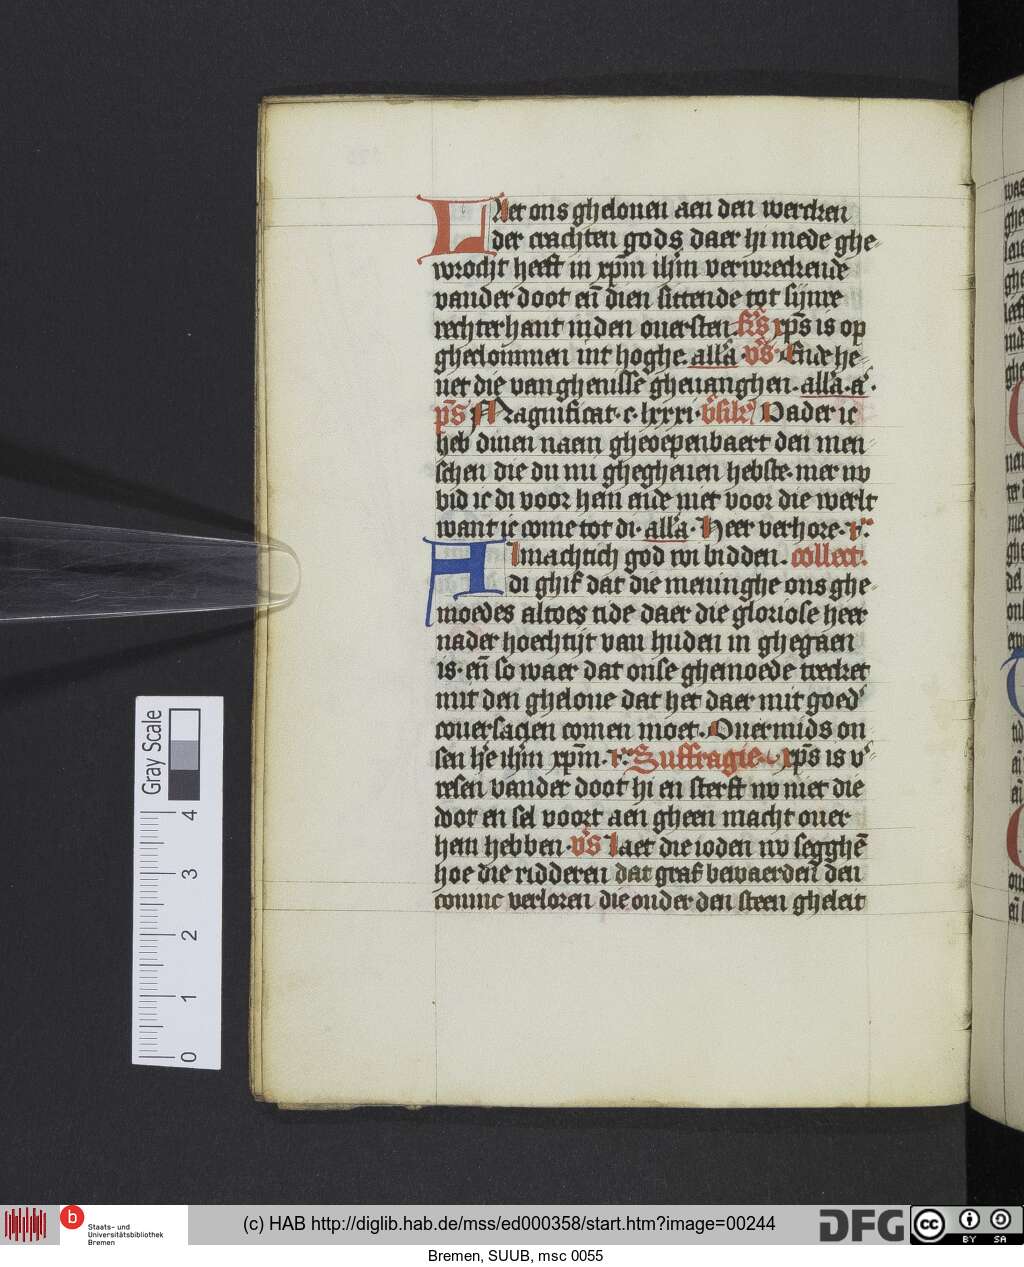 LAet ons ghelouen aen den wercken
der crachten gods, daer hi mede ghe-
wrocht heeft in xp̄m ih̄m verwreckende
vander doot en̄ dien sittende tot sijnre
rechterhant inden ouersten. xp̄s is op
gheclommen int hoghe. all'a. v̄s. Ende he-
uet die vanghenisse gheuanghen. all'a. a'.
p̄s Magnificat. c. lxxxi. Vader ic
heb dinen naem gheoepenbaert den men-
schen die du mi ghegheuen hebste. mer nv
bid ic di voor hem ende niet voor die werlt
want ic come tot di. all'a. Heer verhore. r.
Almachtich god wi bidden. collect.
di ghif dat die meninghe ons ghe-
moedes altoes tide daer die gloriose heer
nader hoechtijt van huden in ghegaen
is. en̄ so waer dat onse ghemoede trecket
mit den gheloue dat het daer mit goed'
conuersacien comen moet. Ouermids on
sen h'e ih̄m xp̄m. r. Suffragie. xp̄s is v'
resen vander doot hi en sterft nv niet die
doot en sel voort aen gheen macht ouer
hem hebben. v̄s Laet die ioden nv segghē
hoe die ridderen dat graf bewaerden den
coninc verloren die onder den steen gheleit
Gray Scale
4
3
2
1
0
b
Staats- und
Universitätsbibliothek
Bremen
(c) HAB http://diglib.hab.de/mss/ed000358/start.htm?image=00244
DFG
cc BY SA
Bremen, SUUB, msc 0055